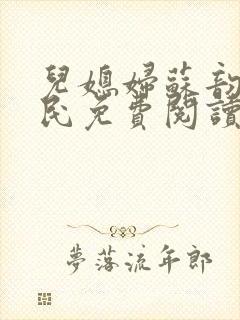 兒媳婦蘇韵
民免費閱讀
夢落流年郎